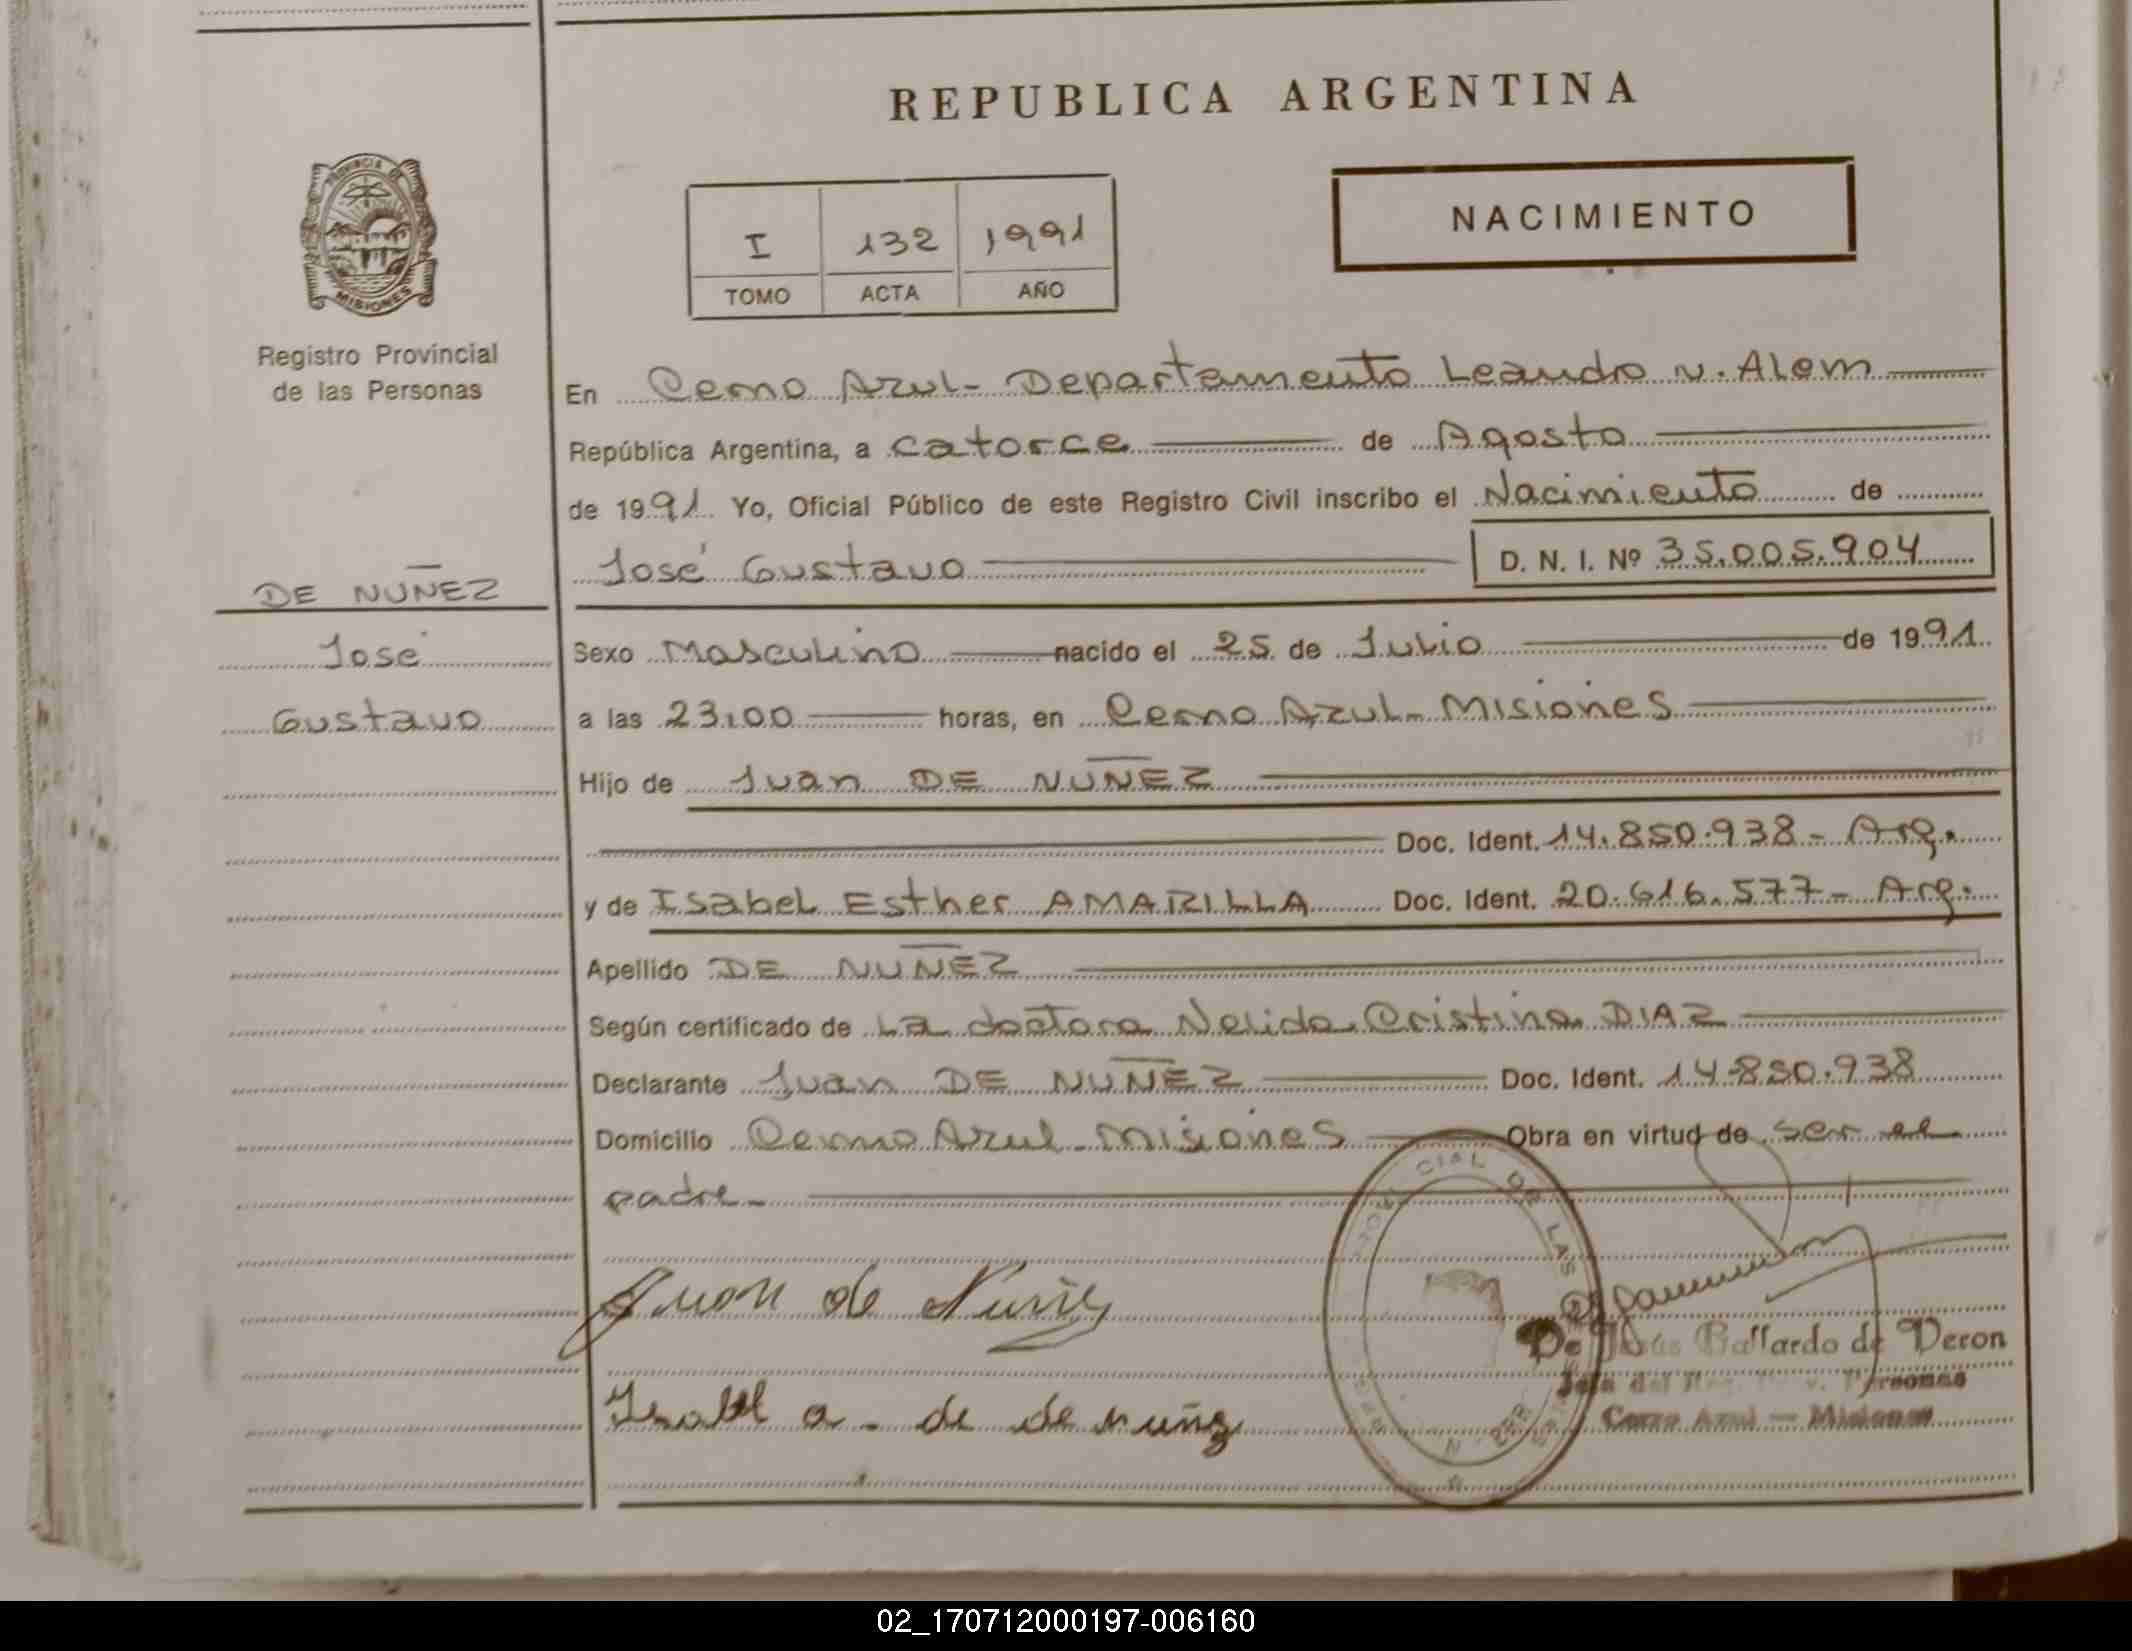 REPUBLICA ARGENTINA
NACIMIENTO
I 132 1991
TOMO ACTA AÑO
PROVINCIA DE MISIONES
Registro Provincial
de las Personas
DE NUÑEZ
José
Gustavo
En Cerro Azul - Departamento Leandro N. Alem
República Argentina, a catorce de Agosto
de 1991 Yo, Oficial Público de este Registro Civil inscribo el Nacimiento de
José Gustavo D. N. I. Nº 35.005.904
Sexo Masculino nacido el 25 de Julio de 1991
a las 23,00 horas, en Cerro Azul - Misiones
Hijo de Juan DE NUÑEZ
Doc. Ident. 14.850.938 - Arg.
y de Isabel Esther AMARILLA Doc. Ident. 20.616.577 - Arg.
Apellido DE NUÑEZ
Según certificado de la doctora Nelida Cristina DIAZ
Declarante Juan DE NUÑEZ Doc. Ident. 14.850.938
Domicilio Cerro Azul - Misiones Obra en virtud de ser el
padre -
Juan de Nuñez
Isabel a. de de nuñez
CIAL DE LAS
Gallardo de Veron
Jefa del Reg. Personas
Cerro Azul — Misiones
02_170712000197-006160